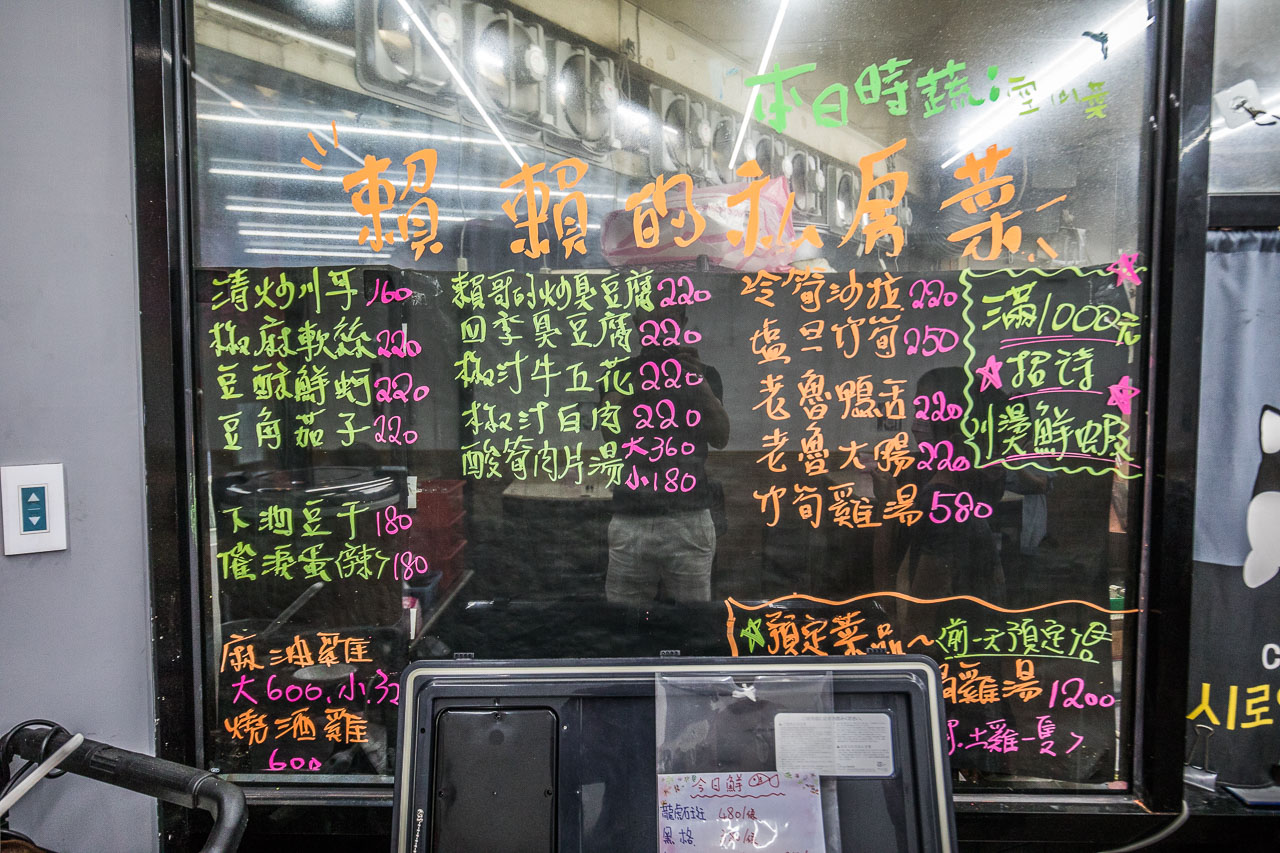 本日時蔬:空心菜
賴 賴的私房菜
清炒川耳 160
椒麻軟絲 220
豆酥鮮蚵 220
豆角茄子 220
下酒豆干 180
催淚蛋(辣) 180
麻油雞
大600.小32
燒酒雞
600
賴哥的炒臭豆腐 220
四季臭豆腐 220
椒汁牛五花 220
椒汁白肉 220
酸筍肉片湯 大360
小180
冷筍沙拉 220
塩旦竹筍 250
老魯鴨舌 220
老魯大腸 220
竹筍雞湯 580
滿1000元
招待
川燙鮮蝦
預定菜品~前一天預定
雞湯 1200
土雞一隻>
今日鮮
龍虎石斑 480/條
黑格
시로